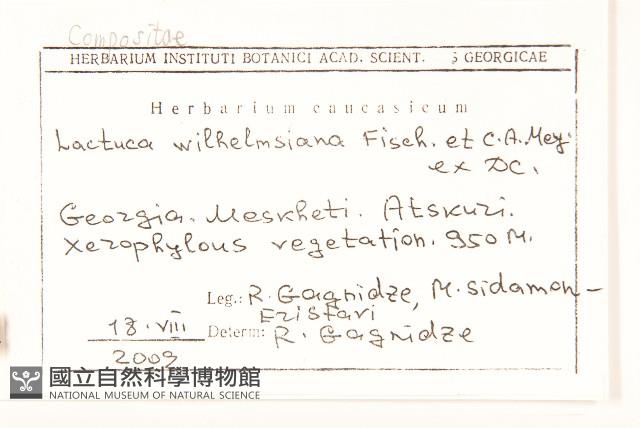 Compositae
HERBARIUM INSTITUTI BOTANICI ACAD. SCIENT. GEORGICAE
Herbarium caucasicum
Lactuca wilhelmsiana Fisch. et C.A.Mey.
ex DC.
Georgia. Meskheti. Atskuri.
Xerophylous vegetation. 950 M.
Leg.: R. Gagnidze, M. Sidamon-
Eristavi
18.VIII Determ: R. Gagnidze
2009
國立自然科學博物館
NATIONAL MUSEUM OF NATURAL SCIENCE